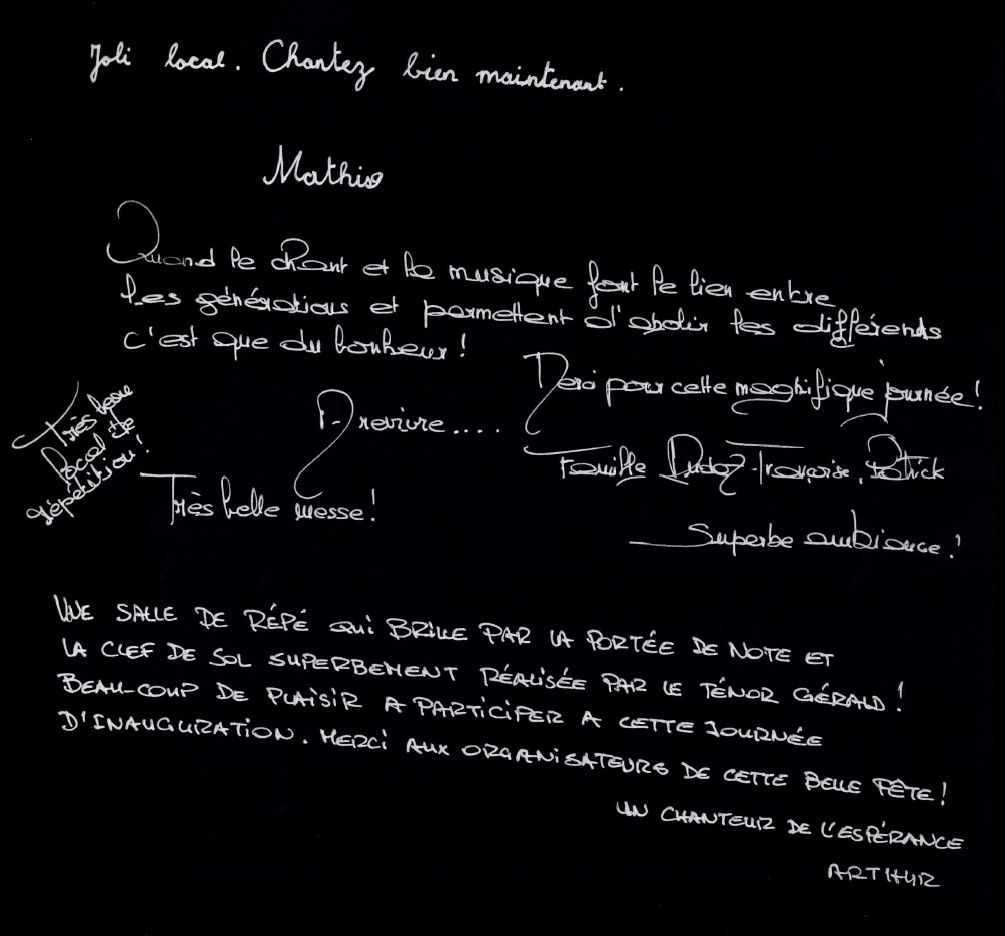 Joli local. Chantez bien maintenant.
Mathis
Quand le chant et la musique font le lien entre
les générations et permettent d'abolir les différends
c'est que du bonheur !
Merci pour cette magnifique journée !
A revivre....
Très beau
local de
répétition !
Famille Françoise, Patrick
Très belle messe !
Superbe ambiance !
UNE SALLE DE RÉPÉ QUI BRILLE PAR LA PORTÉE DE NOTE ET
LA CLEF DE SOL SUPERBEMENT RÉALISÉE PAR LE TÉNOR GÉRALD !
BEAU-COUP DE PLAISIR A PARTICIPER A CETTE JOURNÉE
D'INAUGURATION. MERCI AUX ORGANISATEURS DE CETTE BELLE FÊTE !
UN CHANTEUR DE L'ESPÉRANCE
ARTHUR